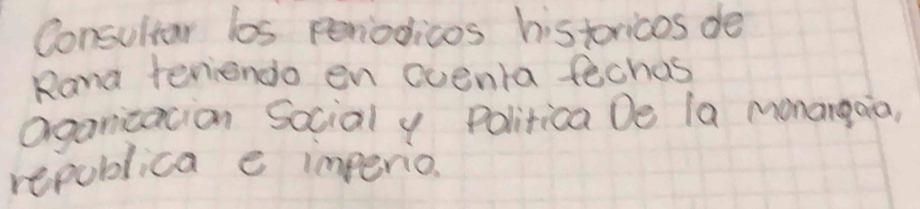 Consultar los periodicos historicos de
Roma teniendo en cuenta fechas
oganicacion Social y Politica De la monarquia,
republica e imperio.